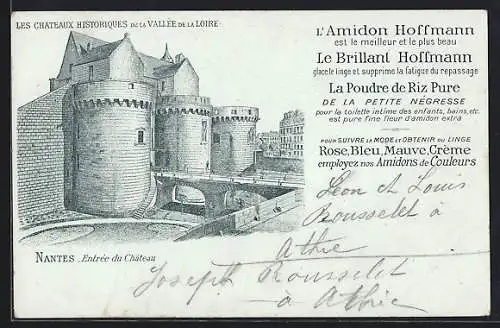 LES CHATEAUX HISTORIQUES DE LA VALLÉE DE LA LOIRE
L'Amidon Hoffmann
est le meilleur et le plus beau
Le Brillant Hoffmann
glace le linge et supprime la fatigue du repassage
La Poudre de Riz Pure
DE LA PETITE NÉGRESSE
pour la toilette intime des enfants, bains, etc.
est pure fine fleur d'amidon extra
POUR SUIVRE LA MODE ET OBTENIR DU LINGE
Rose, Bleu, Mauve, Crème
employez nos Amidons de Couleurs
Léon et Louis
Rousselet à
Athie
NANTES. Entrée du Château
Joseph Rousselet
à Athie